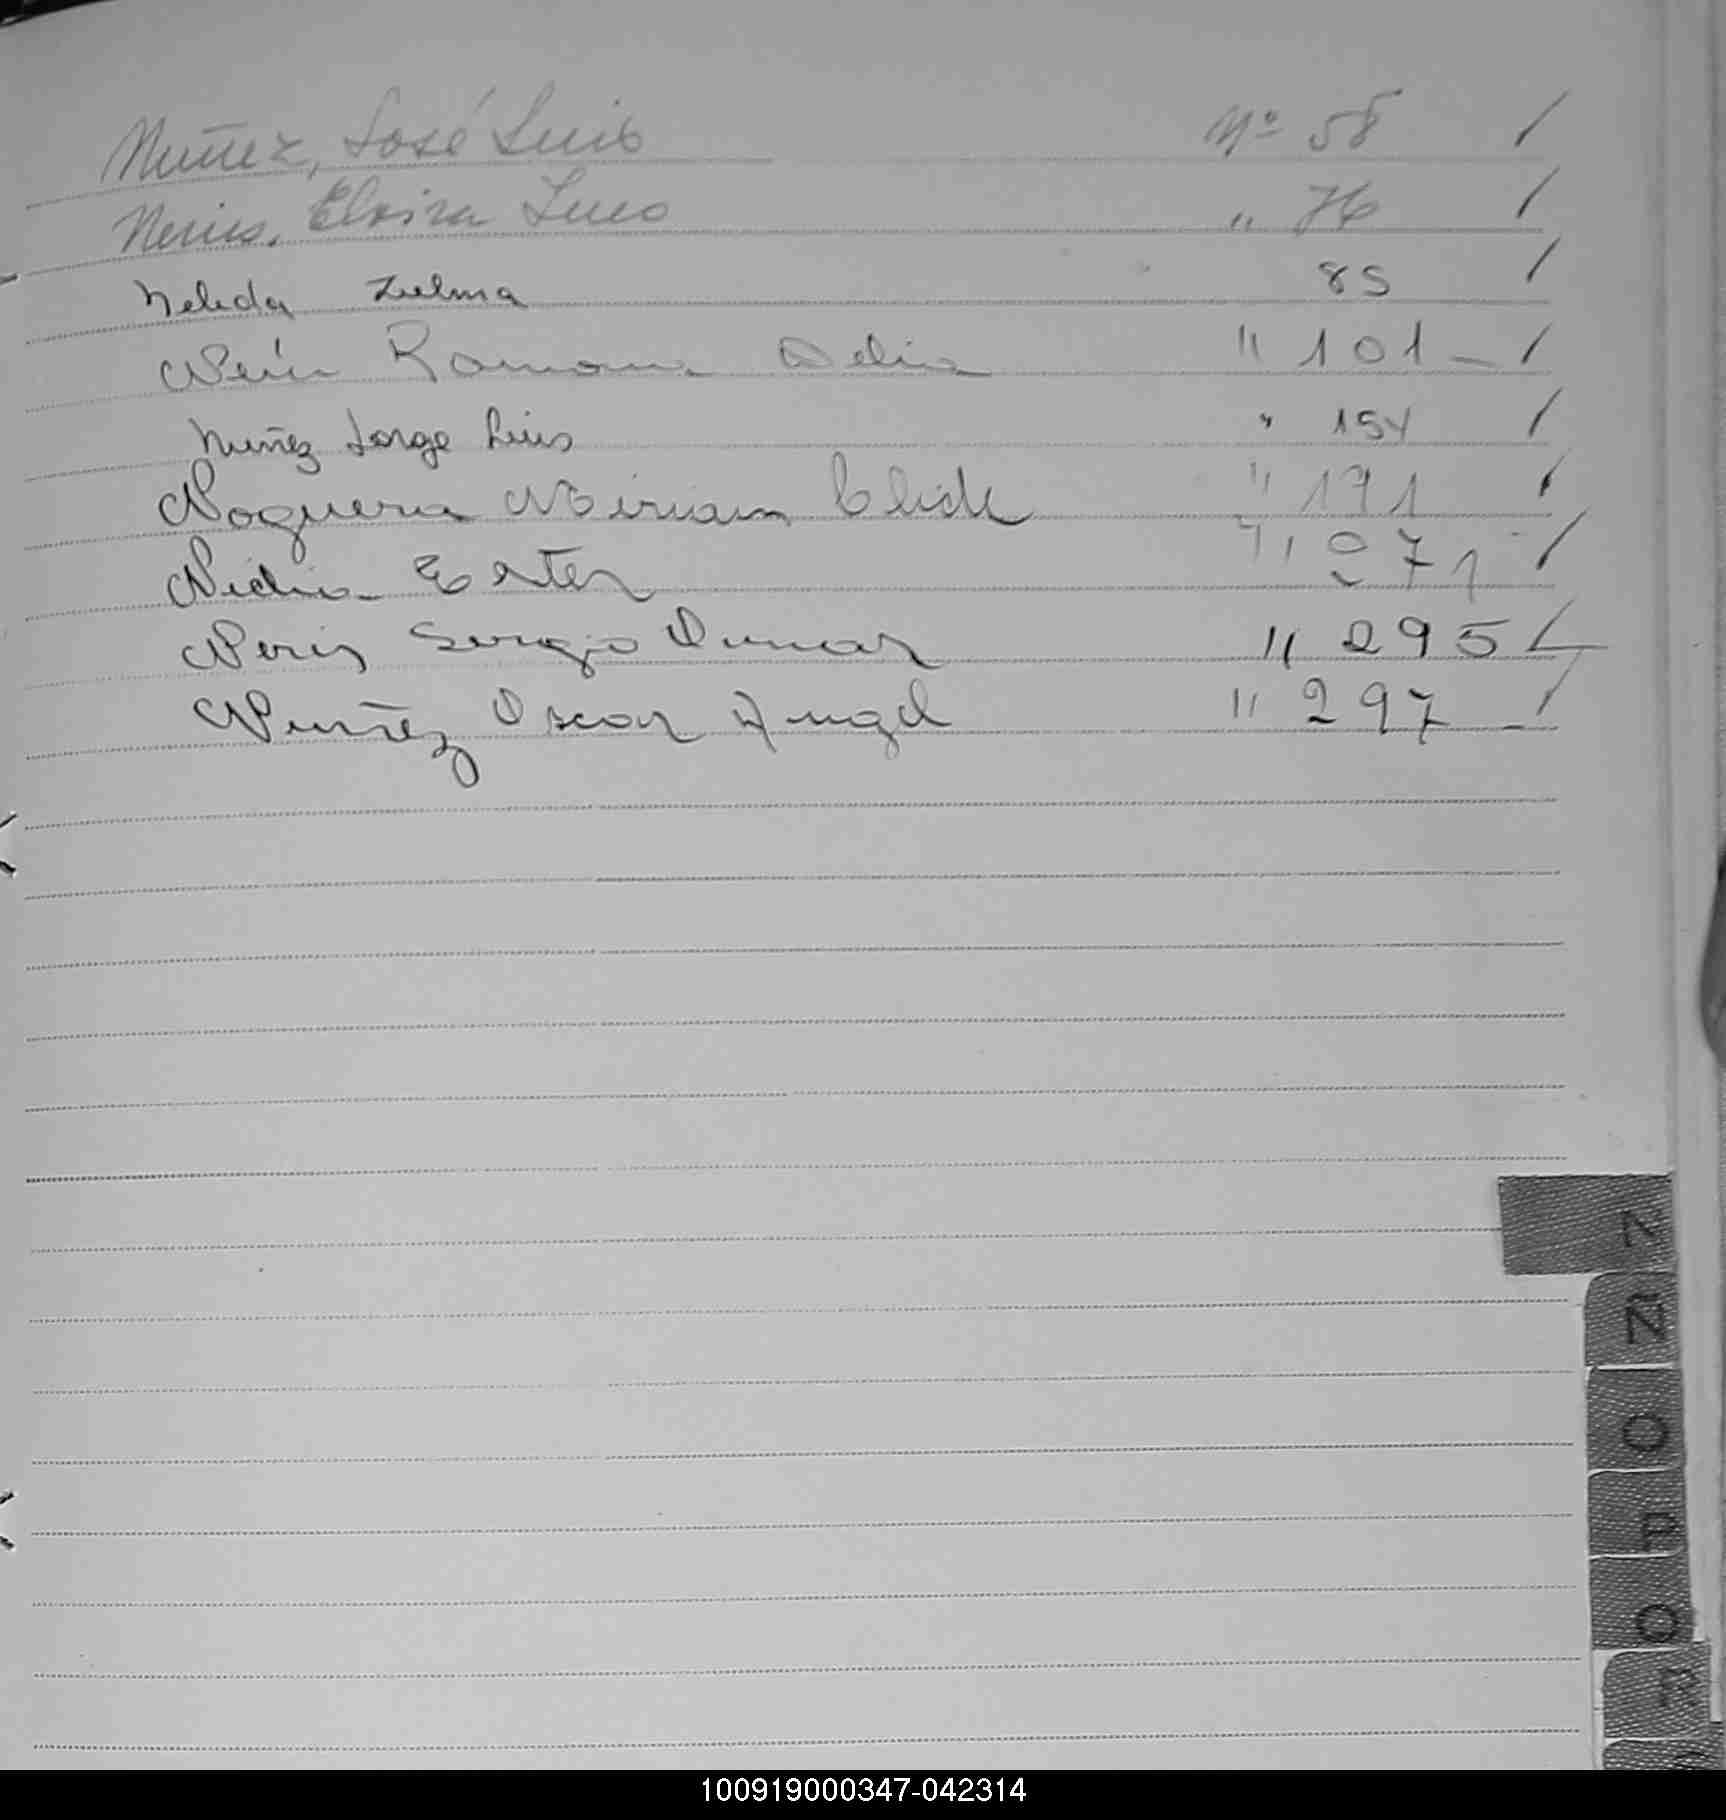 Nuñez, José Luis Nº 58 /
Neris, Elvira Luco " 76 /
Nelida Zulma 85 /
Ramona Delia " 101 - /
Nuñez Jorge Luis " 154 /
Noguera Miriam " 171 /
Nidia Ester " 271 /
Neris Sergio Omar " 295 /
Nuñez Oscar Angel " 297 - /
N
Ñ
O
P
Q
R
100919000347-042314